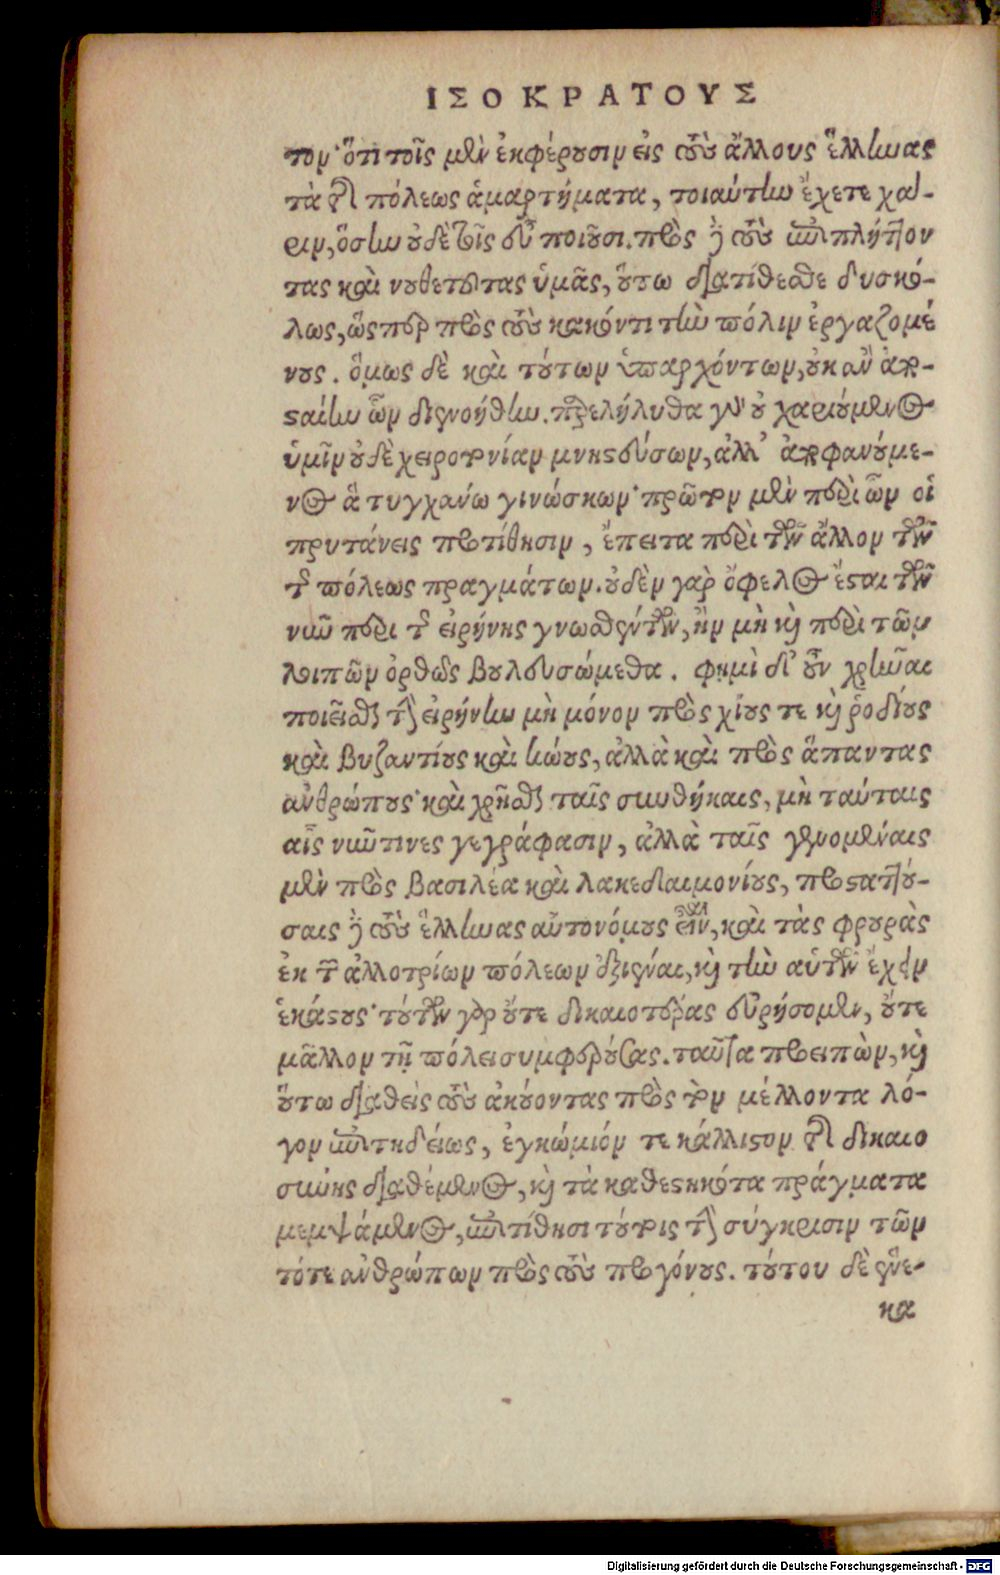 ΙΣΟΚΡΑΤΟΥΣ
τον· ὅτι τοῖς μὲν ἐκφέρουσιν εἰς τοὺς ἄλλους ἕλληνας
τὰ τῆς πόλεως ἁμαρτήματα, τοιαύτην ἔχετε χά-
ριν, ὅσην οὐδὲ τοῖς εὖ ποιοῦσι. πρὸς δὲ τοὺς ἐπιπλήττον
τας καὶ νουθετοῦντας ὑμᾶς, οὕτω διατίθεσθε δυσκό-
λως, ὥσπερ πρὸς τοὺς κακόν τι τὴν πόλιν ἐργαζομέ
νους. ὅμως δὲ καὶ τούτων ὑπαρχόντων, οὐκ ἂν ἀπο-
σταίην ὧν διενοήθην. παρελήλυθα γὰρ οὐ χαριούμενος
ὑμῖν οὐδὲ χειροτονίαν μνηστεύσων, ἀλλ' ἀποφανούμε-
νος ἃ τυγχάνω γινώσκων· πρῶτον μὲν περὶ ὧν οἱ
πρυτάνεις προτίθησιν, ἔπειτα περὶ τῶν ἄλλον τῶν
τῆς πόλεως πραγμάτων. οὐδὲν γὰρ ὄφελος ἔσται τῶν
νῦν περι τῆς εἰρήνης γνωσθέντων, ἢν μὴ καὶ περὶ τῶν
λοιπῶν ὀρθῶς βουλευσώμεθα. φημὶ δ' οὖν χρῆναι
ποιεῖσθαι τὴν εἰρήνην μὴ μόνον πρὸς χίους τε καὶ ῥοδίους
καὶ βυζαντίους καὶ κώους, ἀλλὰ καὶ πρὸς ἅπαντας
ἀνθρώπους· καὶ χρῆσθαι ταῖς συνθήκαις, μὴ ταύταις
αἷς νῦν τινες γεγράφασιν, ἀλλὰ ταῖς γενομέναις
μὲν πρὸς βασιλέα καὶ λακεδαιμονίους, προσταττού-
σαις δὲ τοὺς ἕλληνας αὐτονόμους εἶναι, καὶ τὰς φρουρὰς
ἐκ τῶν ἀλλοτρίων πόλεων ἐξιέναι, καὶ τὴν αὑτῶν ἔχειν
ἑκάστους· τούτων γὰρ οὔτε δικαιοτέρας εὑρήσομεν, οὔτε
μᾶλλον τῇ πόλει συμφερούσας. ταῦτα προειπὼν, καὶ
οὕτω διαθεὶς τοὺς ἀκούοντας πρὸς τὸν μέλλοντα λό-
γον ἐπιτηδείως, ἐγκώμιόν τε κάλλιστον τῆς δικαιο
σύνης διαθέμενος, καὶ τὰ καθεστηκότα πράγματα
μεμψάμενος, ἐπιτίθησι τούτοις τὴν σύγκρισιν τῶν
τότε ἀνθρώπων πρὸς τοὺς προγόνους. τούτου δὲ ἕνε-
κα
Digitalisierung gefördert durch die Deutsche Forschungsgemeinschaft - DFG